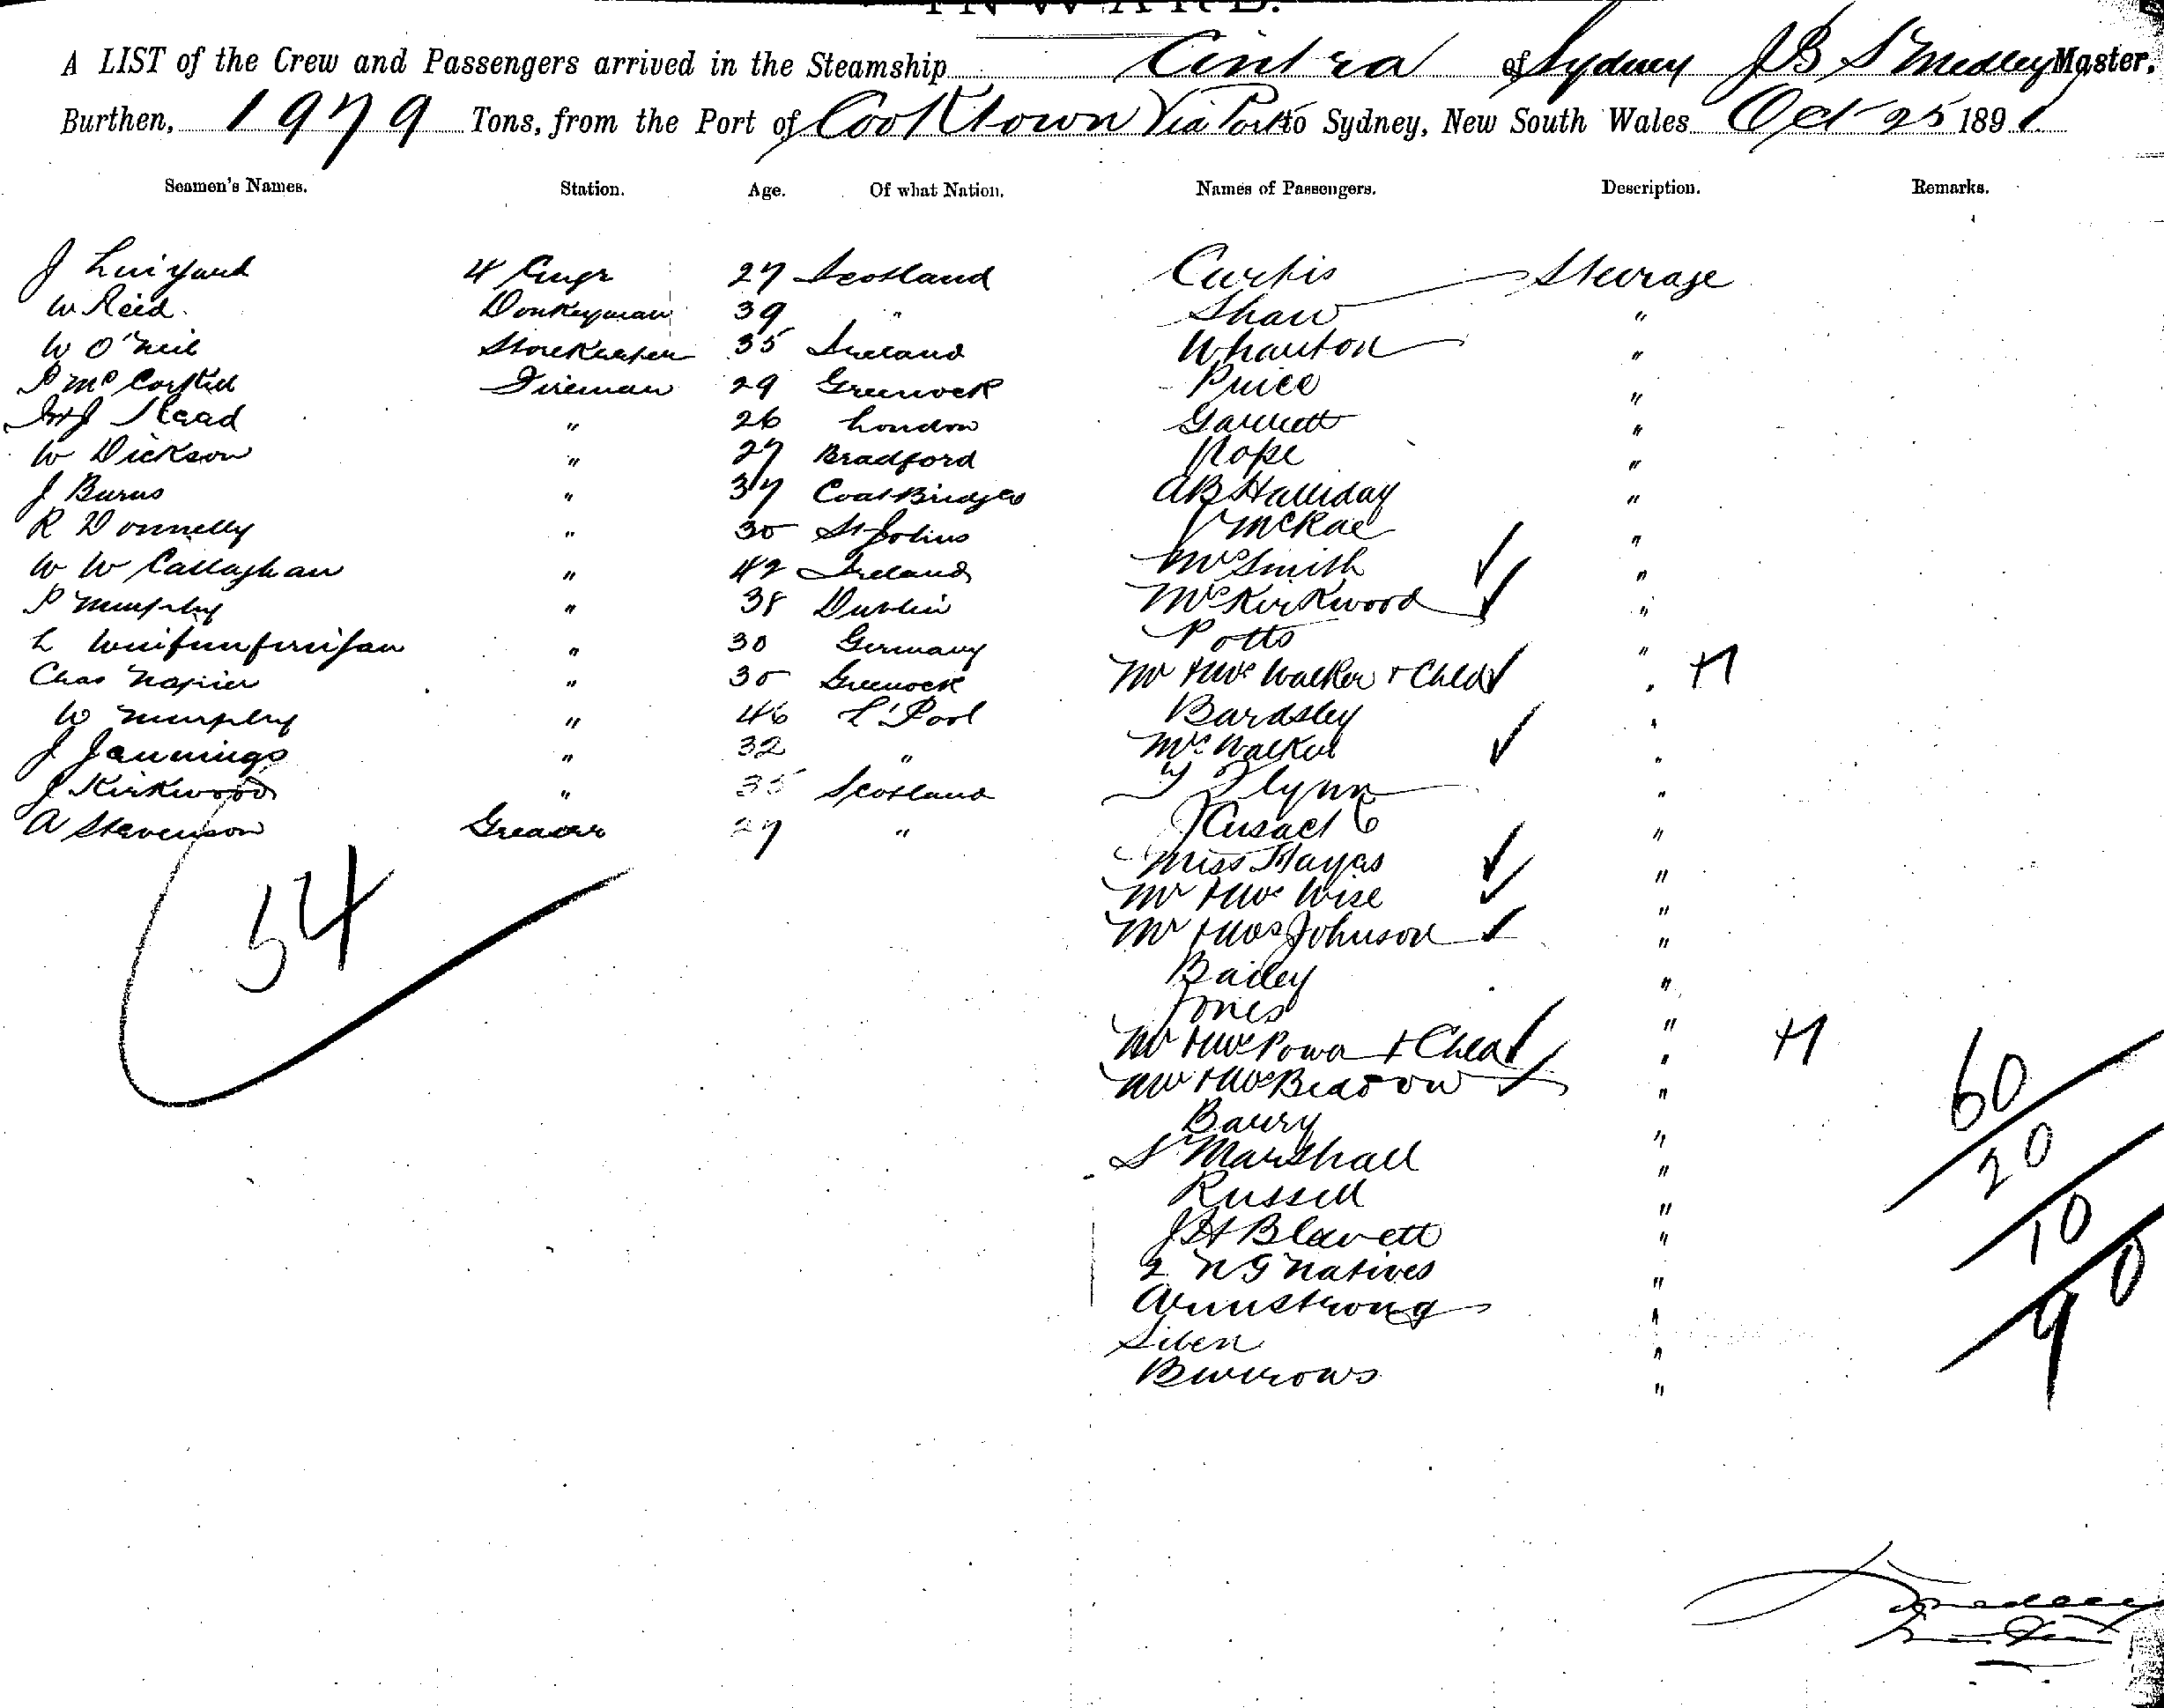 INWARD.
A LIST of the Crew and Passengers arrived in the Steamship Cintra of Sydney JB Smedley Master,
Burthen, 1979 Tons, from the Port of Cooktown Via Ports to Sydney, New South Wales Oct 25 1891
Seamen's Names. Station. Age. Of what Nation. Names of Passengers. Description. Remarks.
J 4 Engr 27 Scotland Curtis Steerage
W Reid Donkeyman 39 " Shaw "
W O'Neil Storekeeper 35 Ireland Wharton "
P Fireman 29 Greenock Price "
Stead " 26 London Garrett "
W Dickson " 27 Bradford Pope "
J Burns " 37 Coatbridge AB Halliday "
R Donnelly " 30 St Johns McRae "
W W Callaghan " 42 Ireland Mrs Smith "
P Murphy " 38 Dublin Mrs Kirkwood "
L " 30 Germany Potts "
Chas Napier " 30 Greenock Mr & Mrs Walker & Child " +1
W Murphy " 46 L'Pool Bardsley "
J Jennings " 32 " Mrs Walker "
J Kirkwood " 35 Scotland Flynn "
A Stevenson Greaser 27 " J Cusack "
Miss Hayes "
Mr & Mrs Wise "
54 Mr & Mrs Johnson "
Bailey "
Jones "
Mr & Mrs Power & Child " +1
Mr & Mrs "
60
Barry "
S Marshall "
20
Russell "
J H Blewett "
10
2 N G Natives "
Armstrong "
90
Siben "
Burrows "
Smedley
Master